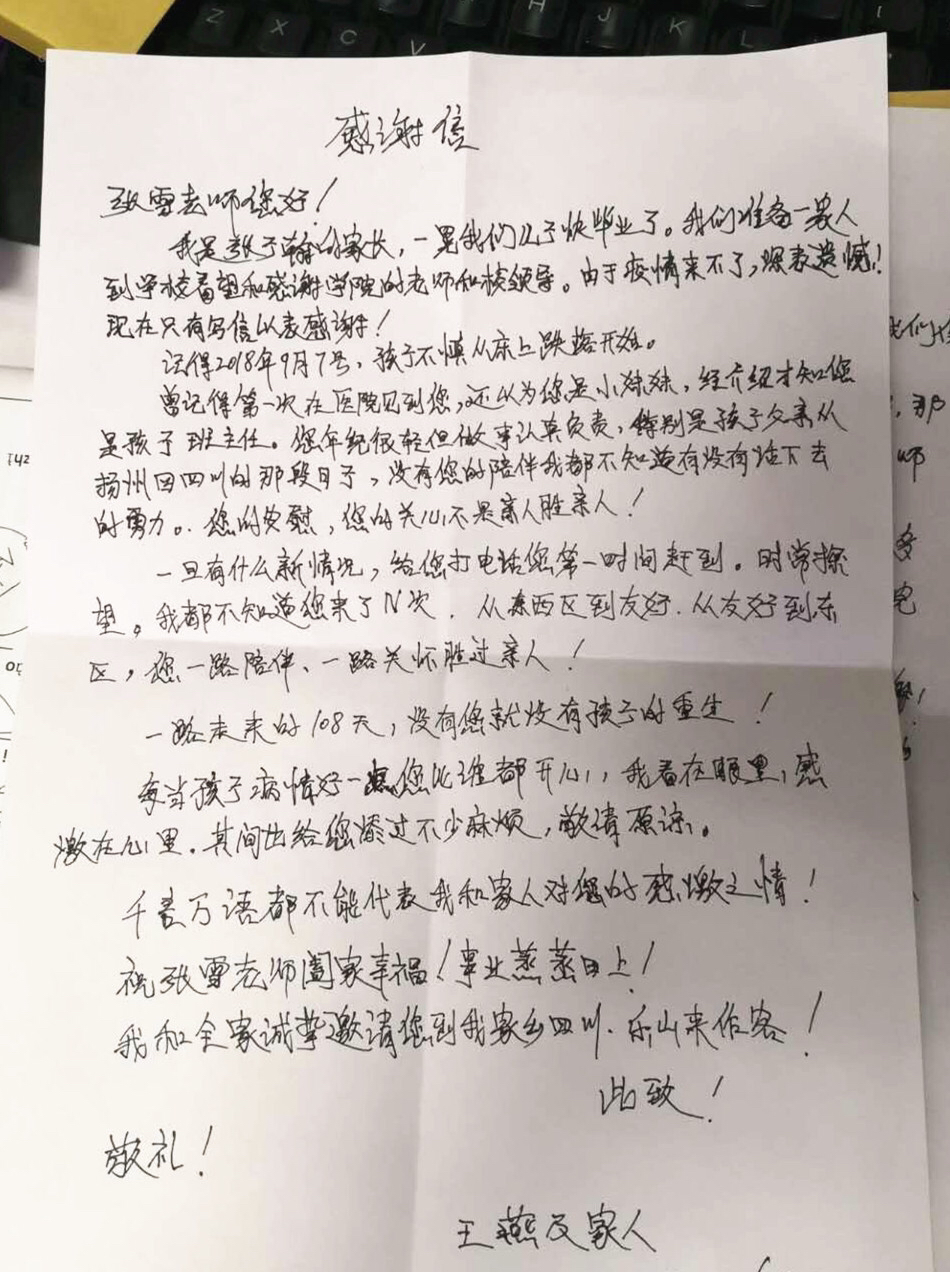 感谢信
张雪老师您好！
我是张子翰的家长，一晃我们儿子快毕业了。我们准备一家人
到学校看望和感谢学院的老师和校领导。由于疫情来不了，深表遗憾！
现在只有写信以表感谢！
记得2018年9月7号，孩子不慎从床上跌落开始。
曾记得第一次在医院见到您，还以为您是小妹妹，经介绍才知您
是孩子班主任。您年纪很轻但做事认真负责，特别是孩子父亲从
扬州回四川的那段日子，没有您的陪伴我都不知道有没有活下去
的勇力。您的安慰，您的关心不是亲人胜亲人！
一旦有什么新情况，给您打电话您第一时间赶到。时常探
望。我都不知道您来了N次．从东西区到友好．从友好到东
区，您一路陪伴、一路关怀胜过亲人！
一路走来的108天，没有您就没有孩子的重生！
每当孩子病情好一点您比谁都开心，我看在眼里，感
激在心里．其间也给您添过不少麻烦，敬请原谅。
千言万语都不能代表我和家人对您的感激之情！
祝张雪老师阖家幸福！事业蒸蒸日上！
我和全家诚挚邀请您到我家乡四川．乐山来作客！
此致！
敬礼！
王燕及家人
Z X C V N H J K L I
我们
，那
师